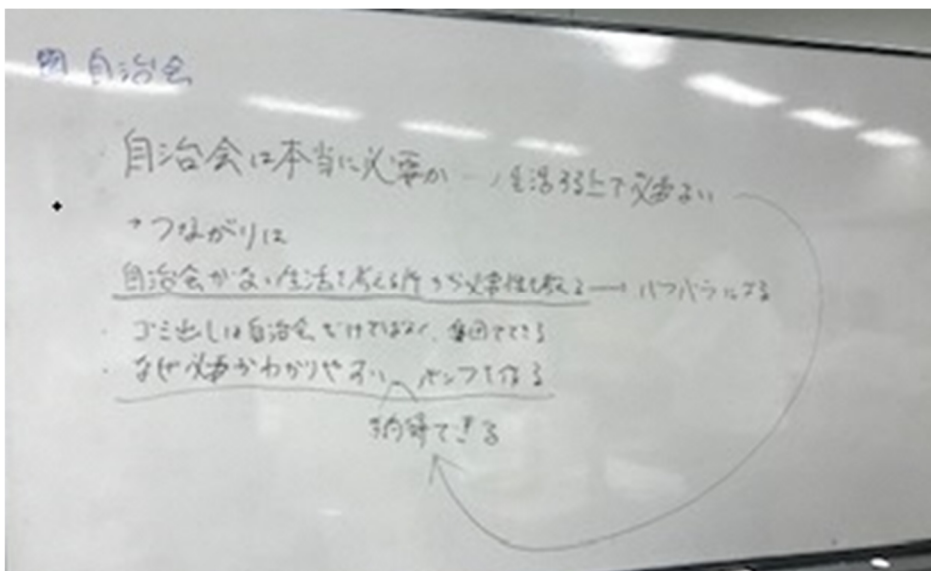 自治会
・自治会は本当に必要か → 生活する上で必要ない
・つながりは
自治会がない生活を考える所から必要性を教える → バラバラになる
・ゴミ出しは自治会だけではなく、集団でできる
・なぜ必要かわかりやすい パンフを作る
納得できる